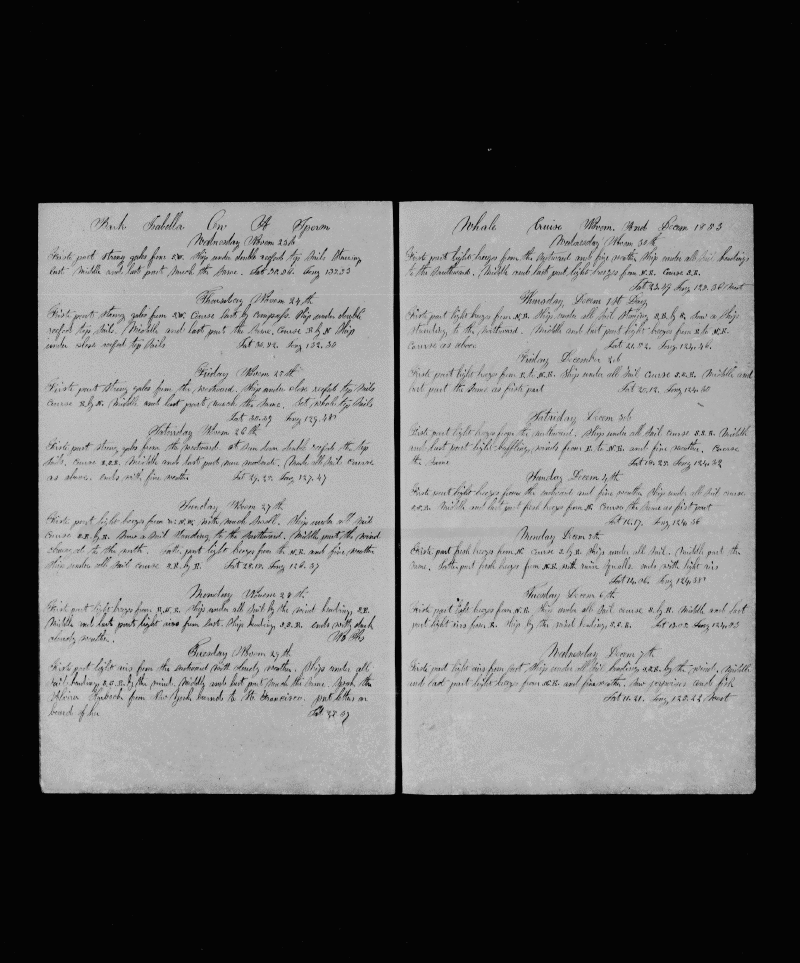 Bark Isabella On A Sperm
Wednesday Novem 23th
First part strong gales from S.W. Ship under double reefed top sails Stearing
East Middle and last part much the same. Lat 30.34. Long 133.33
Thursday Novem 24th
First part strong gales from S.W. Course East by compass. Ship under double
reefed top sails. Middle and last part the same. Course S by E Ship
under close reefed top sails Lat 30.32. Long 132.30
Friday Novem 25th
First part strong gales from the westward. Ship under close reefed top sails
course S by E. Middle and last part much the same. Set whole top sails
Lat 30.29 Long 129.48
Saturday Novem 26th
First part strong gales from the westward at sun down double reefed the top
sails. course S.S.E. Middle and last part more moderate. Made all sail course
as above. ends with fine weather Lat 29.22. Long 127.47
Sunday Novem 27th
First part light breeze from with much swell. Ship under all sail
course S.E. by E. Saw a sail standing to the Northward. Middle part the wind
to the north. Latter part light breeze from the N.E. and fine weather
Ship under all sail course S.E. by E. Lat 28.10. Long 126.37
Monday Novem 28th
First part light breeze from E.N.E. Ship under all sail by the wind heading S.E.
Middle and last part light airs from East. Ship heading S.S.E. ends with dark
cloudy weather. No Obs
Tuesday Novem 29th
First part light airs from the Eastward with cloudy weather. Ship under all
sail heading S.S.E. by the wind. Middle and last part much the same. Spoke the
from New York bound to St Francisco. put letters on
board of her Lat 27.07
Whale Cruise Novem. And Decem 1853
Wednesday Novem 30th
First part light breeze from the Eastward and fine weather Ship under all sail heading
to the Southward. Middle and last part light breeze from N.E. Course S.E.
Lat 23.49 Long 125.36 West
Thursday Decem 1st Day
First part light breeze from N.E. Ship under all sail stearing S.E. by E. Saw a Ship
standing to the Northward. Middle and last part light breeze from E. to N.E.
course as above Lat 21.52. Long 124.46.
Friday December 2th
First part light breeze from E. to N.E. Ship under all sail Course S.S.E. Middle and
last part the same as first part Lat 20.12. Long 124.30
Saturday Decem 3th
First part light breeze from the northward. Ship under all sail course S.S.E. Middle
and last part light baffling winds from E. to N.E. and fine weather. Course
the same Lat 18.25. Long 124.32
Sunday Decem 4th
First part light breeze from the eastward and fine weather Ship under all sail course
S.S.E. Middle and last part light breeze from N.E. Course the same as first part
Lat 16.17. Long 124.36
Monday Decem 5th
First part fresh breeze from N.E. course S by E. Ship under all sail. Middle part the
same. Latter part fresh breeze from N.E. with rain squalls. ends with light airs
Lat 14.36. Long 124.38
Tuesday Decem 6th
First part light breeze from N.E. Ship under all sail course S. by E. Middle and last
part light airs from E. Ship by the wind heading S.S.E. Lat 13.02 Long 124.23
Wednesday Decem 7th
First part light airs from East Ship under all sail heading S.S.E. by the wind. Middle
and last part light breeze from N.E. and fine weather. Saw porpoises and fish
Lat 11.21. Long 123.22 West